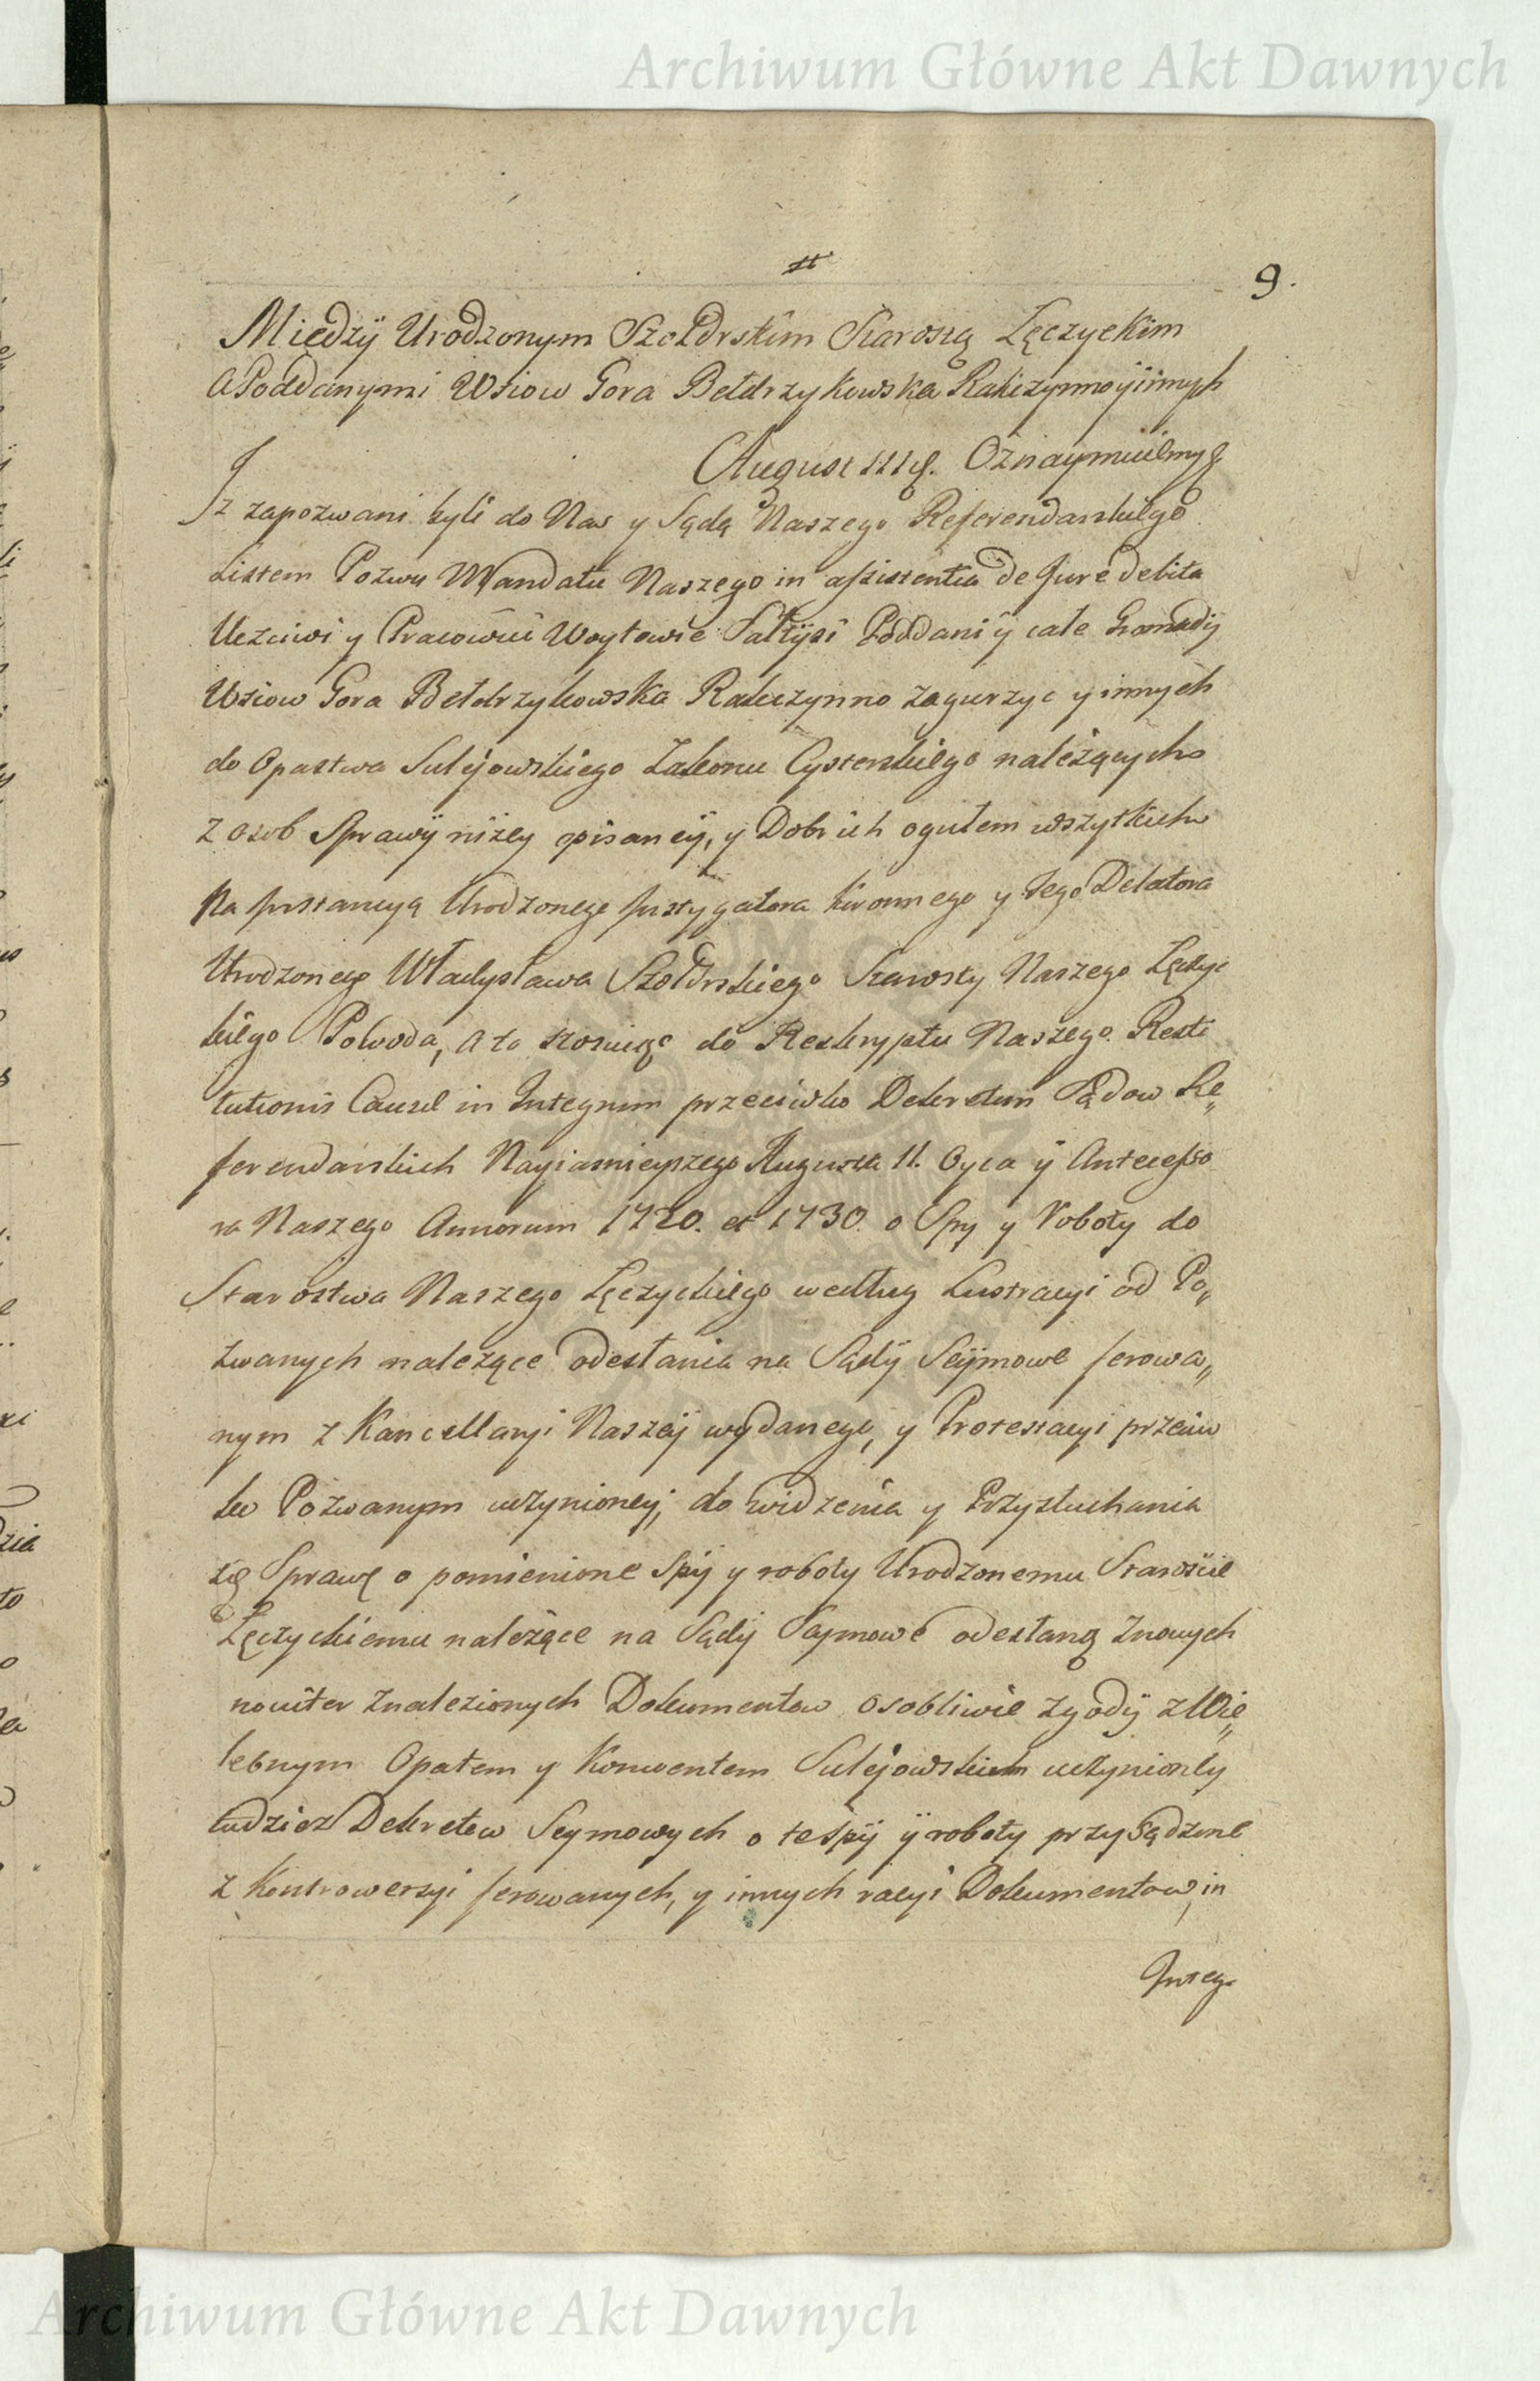 Archiwum Główne Akt Dawnych
9.
Między Urodzonym Szołdrskim Starostą Łęczyckim
A Poddanymi Wsiow Gora Bełdrzykowska Rakczynno y innych
August III g. Oznaymuiemy
Iz zapozwani byli do Nas y Sądą Naszego Referendarskiego
Listem Pozwu Mandatu Naszego in assistentia de Jure debita
Uczciwi y Pracowici Woytowie Sałtysi Poddani y całe Gromady
Wsiow Gora Bełdrzykowska Rakczynno Zagurzyc y innych
do Opastwa Sulejowskiego Zakonu Cysterskiego należących
z osob Sprawy niżey opisaney, y Dobr ich ogułem wszytkich
Na Instancyą Urodzonego Instygatora Koronnego y Jego Delatora
Urodzonego Władysława Szołdrskiego Starosty Naszego Łęczyc
kiego Powoda, a to stosuiąc do Reskryptu Naszego Resti
tutionis Causæ in Integrum przeciwko Dekretom Sądow Re„
ferendarskich Nayiasnieyszego Augusta II. Oyca y Antecesso
ra Naszego Annorum 1720. et 1730. o Spy y Roboty do
Starostwa Naszego Łęczyckiego według Lustracyi od Po„
zwanych nalezące odesłania na Sądy Seymowe ferowa„
nym z Kancellaryi Naszey wydanego, y Protestacyi przeciw
ko Pozwanym uczynioney, do widzenia y Przysłuchania
się Sprawę o pomienione Spy y roboty Urodzonemu Starościе
Łęczyckiemu należące na Sądy Sejmowe odesłaną Znowych
noviter Znalezionych Dokumentow osobliwie zgody z Wie„
lebnym Opatem y Konwentem Sulejowskiem uczynioney
tudziez Dekretow Seymowych o te Spy y roboty przysądzone
z Kontrowersyi ferowanych, y innych racyi Dokumentow, in
Integ.
Archiwum Główne Akt Dawnych